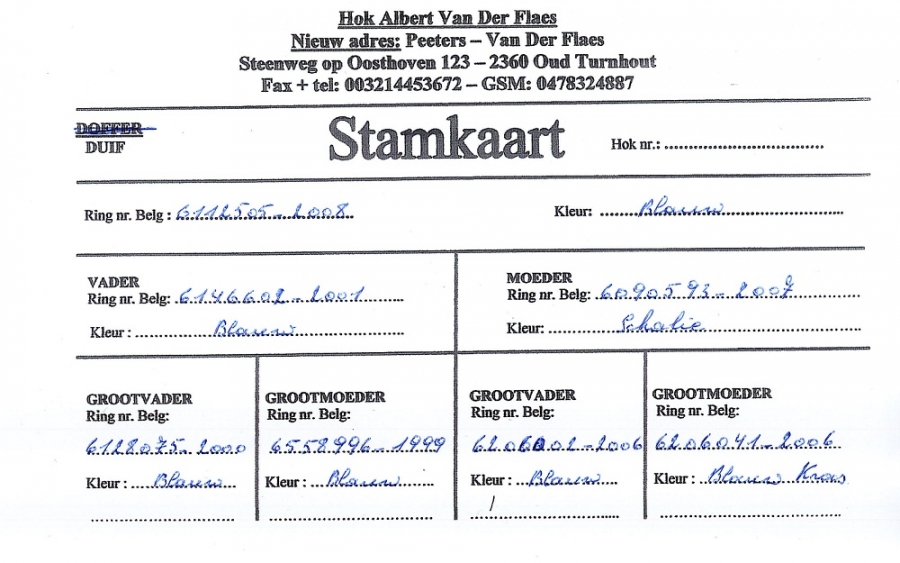 Hok Albert Van Der Flaes
Nieuw adres: Peeters – Van Der Flaes
Steenweg op Oosthoven 123 – 2360 Oud Turnhout
Fax + tel: 003214453672 – GSM: 0478324887
DOFFER
DUIF
Stamkaart
Hok nr.:
Ring nr. Belg : 6112505-2008
Kleur: Blauw
VADER
Ring nr. Belg: 6146602-2001
Kleur : Blauw
MOEDER
Ring nr. Belg: 6090593-2007
Kleur: Schalie
GROOTVADER
Ring nr. Belg:
6128075-2000
Kleur : Blauw
GROOTMOEDER
Ring nr. Belg:
6558996-1999
Kleur : Blauw
GROOTVADER
Ring nr. Belg:
6206002-2006
Kleur : Blauw
GROOTMOEDER
Ring nr. Belg:
6206041-2006
Kleur : Blauw Kras